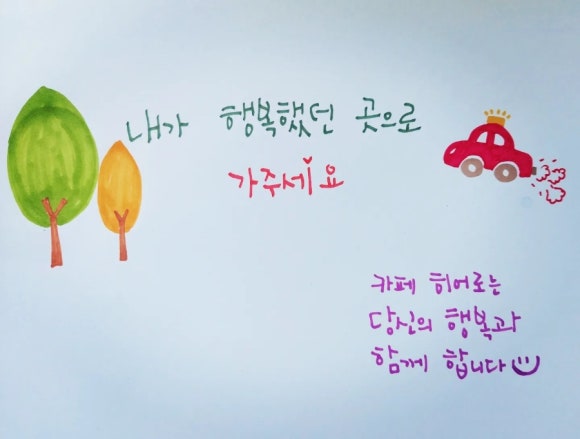 내가 행복했던 곳으로
가주세요
카페 히어로는
당신의 행복과
함께 합니다